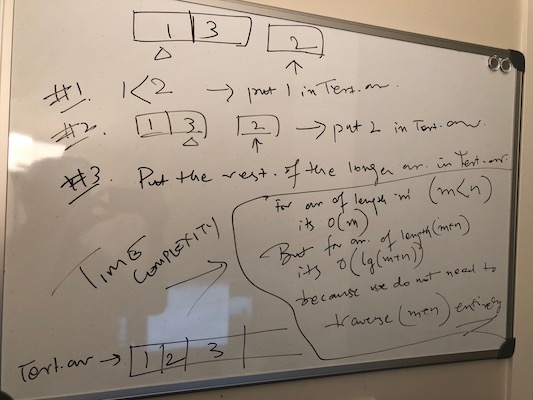 1 3 2
#1. 1<2 → put 1 in Tert.ar.
#2. 1 3 2 → put 2 in Tert.arr.
#3. Put the rest. of the longer ar. in Tert.ar.
For arr of length 'm' (m<n)
its O(m)
But for arr. of length (m+n)
its O(lg(m+n))
because we do not need to
traverse (m+n) entirely
TIME
COMPLEXITY
Tert.ar → 1 2 3